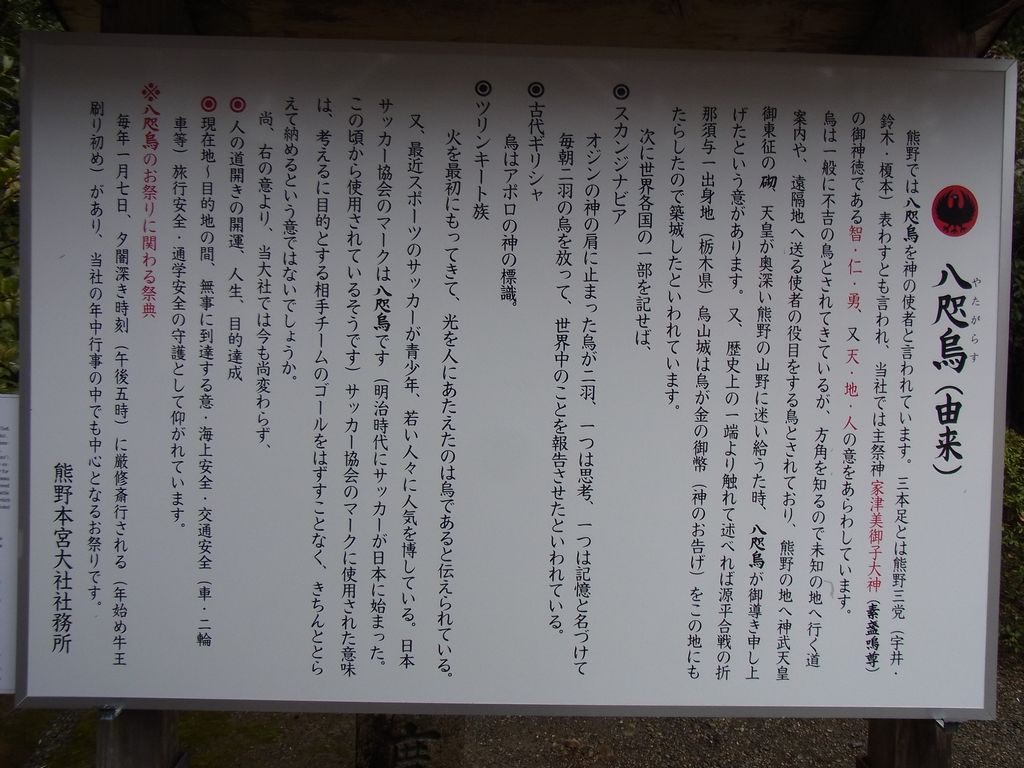 八咫烏（由来）
やたがらす
熊野では八咫烏を神の使者と言われています。三本足とは熊野三党（宇井・
鈴木・榎本）表わすとも言われ、当社では主祭神家津美御子大神（素盞嗚尊）
の御神徳である智・仁・勇、又天・地・人の意をあらわしています。
烏は一般に不吉の鳥とされてきているが、方角を知るので未知の地へ行く道
案内や、遠隔地へ送る使者の役目をする鳥とされており、熊野の地へ神武天皇
御東征の砌、天皇が奥深い熊野の山野に迷い給うた時、八咫烏が御導き申し上
げたという意があります。又、歴史上の一端より触れて述べれば源平合戦の折
那須与一出身地（栃木県）烏山城は烏が金の御幣（神のお告げ）をこの地にも
たらしたので築城したといわれています。
次に世界各国の一部を記せば、
◎スカンジナビア
オジンの神の肩に止まった烏が二羽、一つは思考、一つは記憶と名づけて
毎朝二羽の烏を放って、世界中のことを報告させたといわれている。
◎古代ギリシャ
烏はアポロの神の標識。
◎ツリンキート族
火を最初にもってきて、光を人にあたえたのは烏であると伝えられている。
又、最近スポーツのサッカーが青少年、若い人々に人気を博している。日本
サッカー協会のマークは八咫烏です（明治時代にサッカーが日本に始まった。
この頃から使用されているそうです）サッカー協会のマークに使用された意味
は、考えるに目的とする相手チームのゴールをはずすことなく、きちんととら
えて納めるという意ではないでしょうか。
尚、右の意より、当大社では今も尚変わらず、
◎人の道開きの開運、人生、目的達成
◎現在地～目的地の間、無事に到達する意・海上安全・交通安全（車・二輪
車等）旅行安全・通学安全の守護として仰がれています。
※八咫烏のお祭りに関わる祭典
毎年一月七日、夕闇深き時刻（午後五時）に厳修斎行される（年始め牛王
刷り初め）があり、当社の年中行事の中でも中心となるお祭りです。
熊野本宮大社社務所